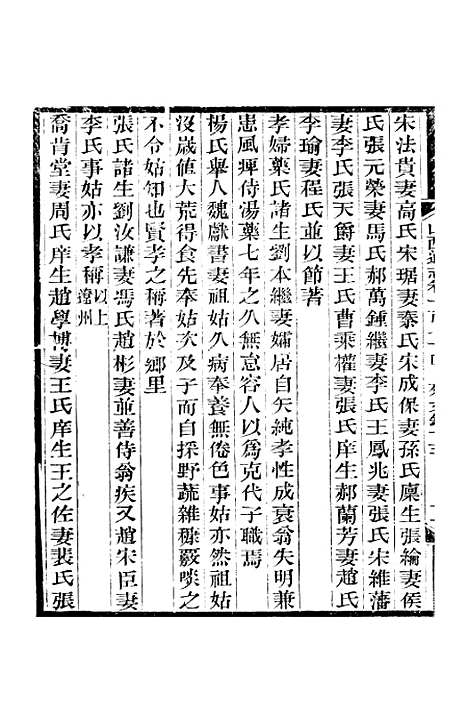 宋法貴妻高氏宋琚妻秦氏宋成保妻孫氏廩生張綸妻侯
氏張元榮妻馬氏郝萬鍾繼妻李氏王鳳兆妻張氏宋維藩
妻李氏張天爵妻王氏曹乘權妻張氏庠生郝蘭芳妻趙氏
李瑜妻程氏並以節著
孝婦藥氏諸生劉本繼妻孀居自矢純孝性成衰翁失明兼
患風痺侍湯藥七年之久無怠容人以爲克代子職焉
楊氏舉人魏獻書妻姑久病奉養無倦色事姑亦然祖姑
沒歲値大荒得食先奉姑次及子而自採野蔬雜穅覈啖之
不令姑知也賢孝之稱著於鄉里
張氏諸生劉汝謙妻馮氏趙彬妻並善侍翁疾又趙宋臣妻
李氏事姑亦以孝稱以上遼州
喬肯堂妻周氏庠生趙學博妻王氏庠生王之佐妻裴氏張